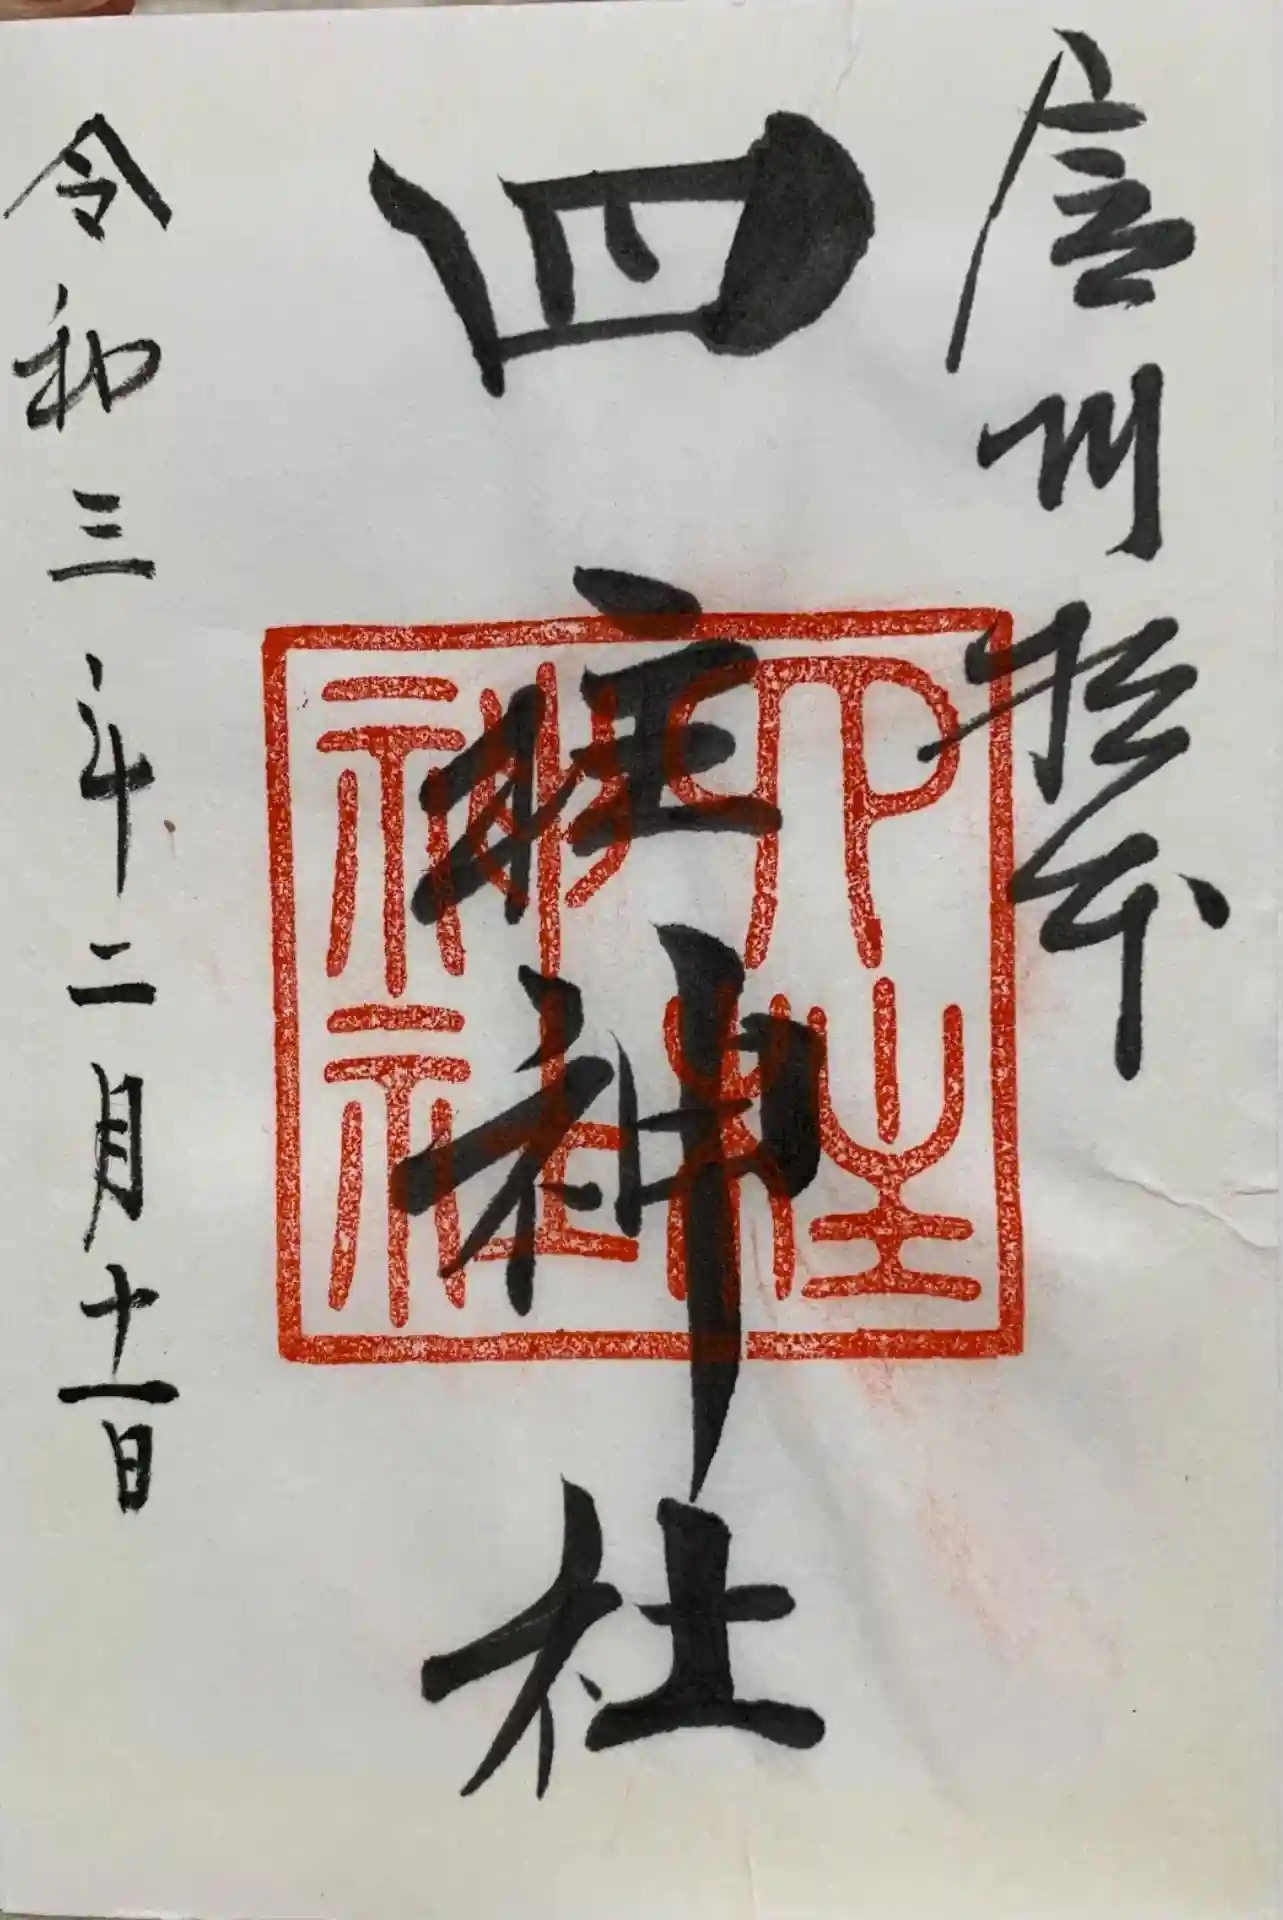 信州松本
四柱神社
令和三年二月十一日
四柱
神社